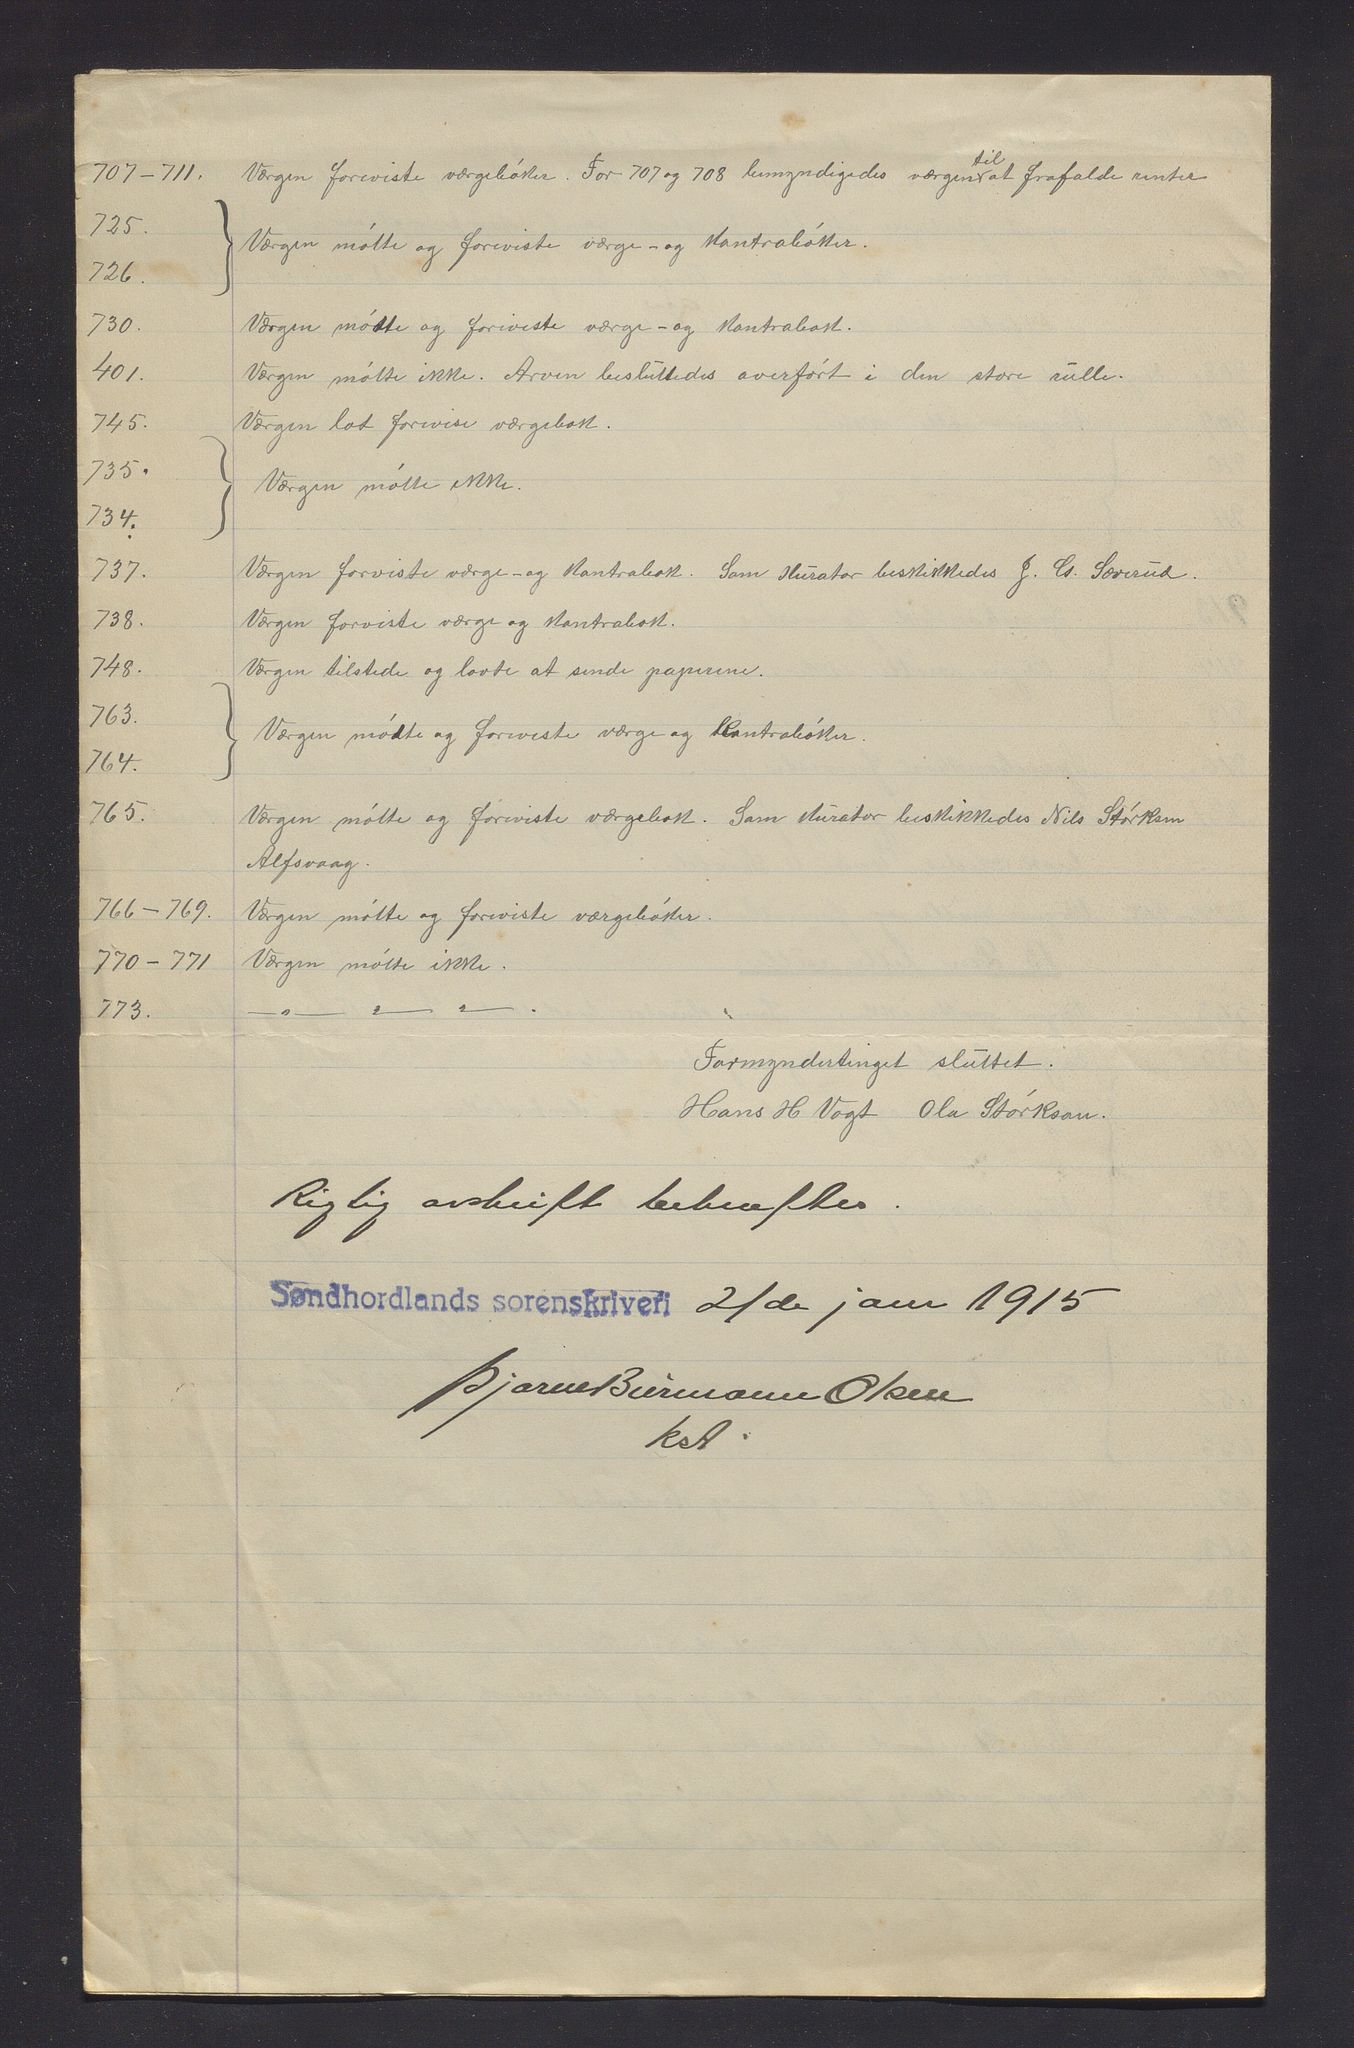 707 – 711. Værgen foreviste værgebøker. For 707 og 708 bemyndigedes værgen til at frafalde renter
725.
Værgen møtte og foreviste værge- og kontrabøker.
726.
730. Værgen mødte og foreviste værge- og kontrabok.
401. Værgen møtte ikke. Arven besluttedes overført i den store rulle.
745. Værgen lot forevise værgebok.
735.
Værgen møtte ikke.
734.
737. Værgen forviste værge- og kontrabok. Som kurator beskikkedes J. Cl. Sæverud.
738. Værgen forviste værge og kontrabok.
748. Værgen tilstede og lovte at sende papirene.
763.
Værgen mødte og foreviste værge og kontrabøker.
764.
765. Værgen møtte og foreviste værgebok. Som kurator beskikkedes Nils Størksen
Alfsvaag.
766 – 769. Værgen møtte og foreviste værgebøker.
770 – 771 Værgen møtte ikke.
773. — " — " — " — .
Formyndertinget sluttet.
Hans H Vogt Ola Størkson.
Rigtig avskrift bekræftes.
Søndhordlands sorenskriveri 21de janr 1915
Bjarne Burmann Olsen
kst